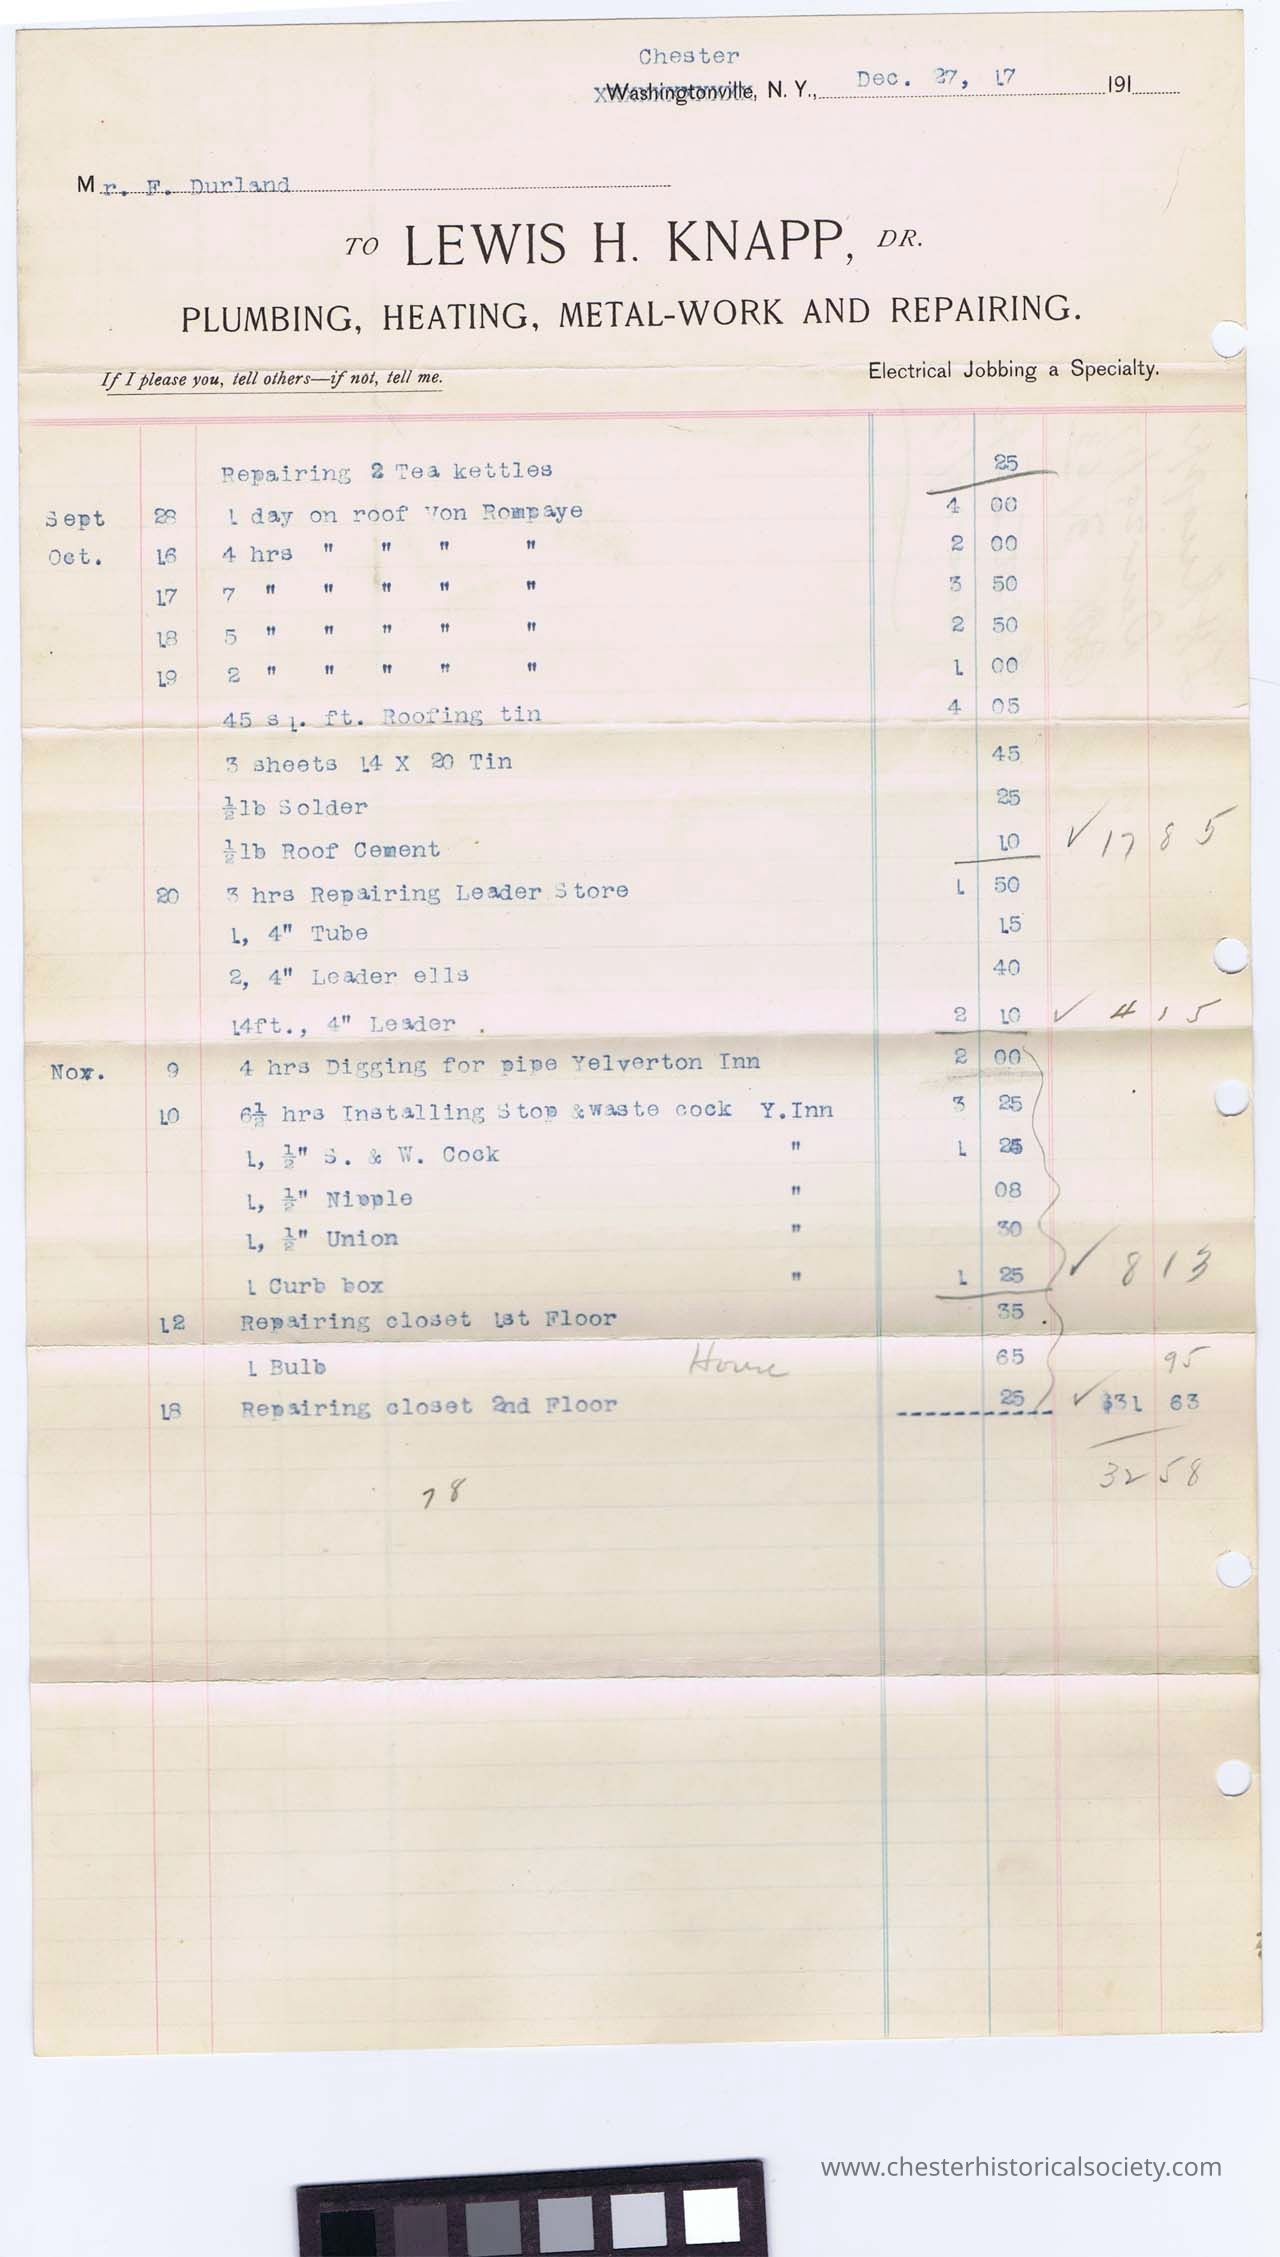 Chester
Washingtonville, N. Y., Dec. 27, 17 191
Mr. F. Durland
TO LEWIS H. KNAPP, DR.
PLUMBING, HEATING, METAL-WORK AND REPAIRING.
If I please you, tell others—if not, tell me.
Electrical Jobbing a Specialty.
Repairing 2 Tea kettles 25
Sept 28 1 day on roof Von Rompaye 4 00
Oct. 16 4 hrs " " " " 2 00
17 7 " " " " " 3 50
18 5 " " " " " 2 50
19 2 " " " " " 1 00
45 sq. ft. Roofing tin 4 05
3 sheets 14 X 20 Tin 45
½lb Solder 25
½lb Roof Cement 10 ✓ 17 85
20 3 hrs Repairing Leader Store 1 50
1, 4" Tube 15
2, 4" Leader ells 40
14ft., 4" Leader . 2 10 ✓ 4 15
Nov. 9 4 hrs Digging for pipe Yelverton Inn 2 00
10 6½ hrs Installing Stop &waste cock Y.Inn 3 25
1, ½" S. & W. Cock " 1 25
1, ½" Nipple " 08
1, ½" Union " 30
1 Curb box " 1 25 ✓ 8 13
12 Repairing closet 1st Floor 35
1 Bulb House 65 95
18 Repairing closet 2nd Floor 25 ✓ $31 63
32 58
78
www.chesterhistoricalsociety.com